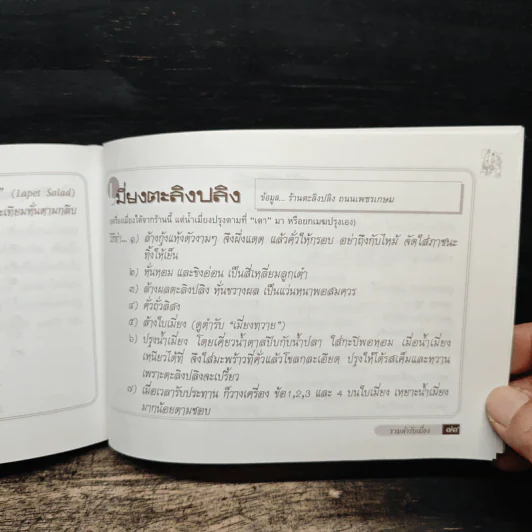 ” (Lapet Salad)
ะเทียมหั่นตามกลีบ
เมี่ยงตะลิงปลิง
ข้อมูล... ร้านตะลิงปลิง ถนนเพชรเกษม
เครื่องเมี่ยงได้จากร้านนี้ แต่น้ำเมี่ยงปรุงตามที่ “เดา” มา หรือยกเมฆปรุงเอง)
วิธีทำ... ๑) ล้างกุ้งแห้งตัวงามๆ จึงผึ่งแดด แล้วคั่วให้กรอบ อย่าถึงกับไหม้ จัดใส่ภาชนะ
ทิ้งให้เย็น
๒) หั่นหอม และขิงอ่อน เป็นสี่เหลี่ยมลูกเต๋า
๓) ล้างผลตะลิงปลิง หั่นขวางผล เป็นแว่นหนาพอสมควร
๔) คั่วถั่วลิสง
๕) ล้างใบเมี่ยง (ดูตำรับ “เมี่ยงทวาย”)
๖) ปรุงน้ำเมี่ยง โดยเคี่ยวน้ำตาลปีบกับน้ำปลา ใส่กะปิพอหอม เมื่อน้ำเมี่ยง
เหนียวได้ที่ จึงใส่มะพร้าวที่คั่วแล้วโขลกละเอียด ปรุงให้ได้รสเค็มและหวาน
เพราะตะลิงปลิงจะเปรี้ยว
๗) เมื่อเวลารับประทาน ก็วางเครื่อง ข้อ1,2,3 และ 4 บนใบเมี่ยง เหยาะน้ำเมี่ยง
มากน้อยตามชอบ
รวมตำรับเมี่ยง